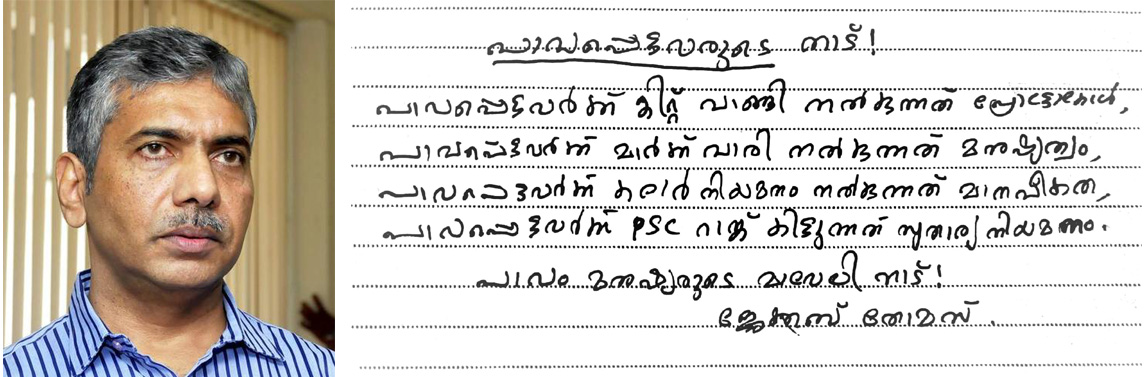 പാവപ്പെട്ടവരുടെ നാട്!
പാവപ്പെട്ടവർക്ക് കിറ്റ് വാങ്ങി നൽകുന്നത് പ്രോട്ടോകോൾ,
പാവപ്പെട്ടവർക്ക് മാർക്ക് വാരി നൽകുന്നത് മനുഷ്യത്വം,
പാവപ്പെട്ടവർക്ക് കരാർ നിയമനം നൽകുന്നത് മാനുഷീകത,
പാവപ്പെട്ടവർക്ക് PSC റാങ്ക് കിട്ടുന്നത് സുതാര്യ നിയമനം.
പാവം മനുഷ്യരുടെ മാവേലി നാട്!
ജേക്കബ് തോമസ്.